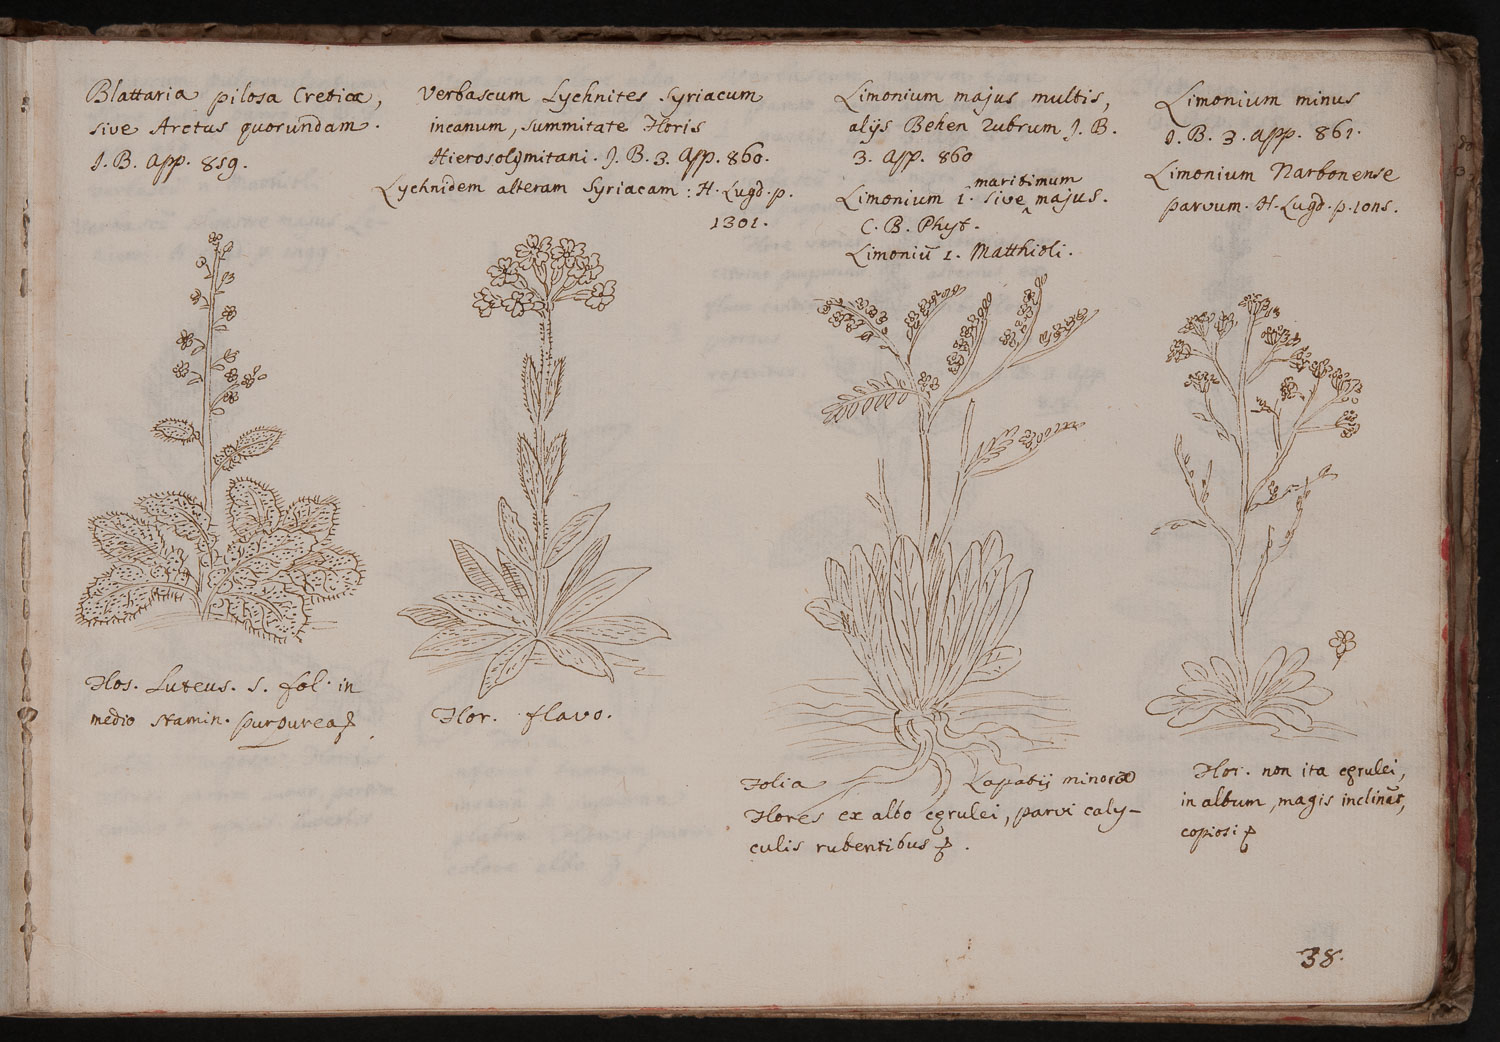 Blattaria pilosa Cretica,
sive Arctus quorundam.
I. B. App. 859.
Verbascum Lychnites Syriacum
incanum, summitate Floris
Hierosolymitani. J. B. 3. App. 860.
Lychnidem alteram Syriacam: H. Lugd. p.
1301.
Limonium majus multis,
alijs Behen rubrum J. B.
3. App. 860
maritimum
Limonium 1. sive ‸ majus.
C. B. Phyt.
Limoniū 1. Matthioli.
Limonium minus
I. B. 3. App. 861.
Limonium Narbonense
parvum. H. Lugd. p.
Flos. Luteus. 5. fol. in
medio stamin. purpurea
Flor. flavo.
Folia Lapatij minoris
Flores ex albo cęrulei, parvi caly-
culis rubentibus
Flor. non ita cęrulei,
in album, magis inclinēt,
copiosi
38.